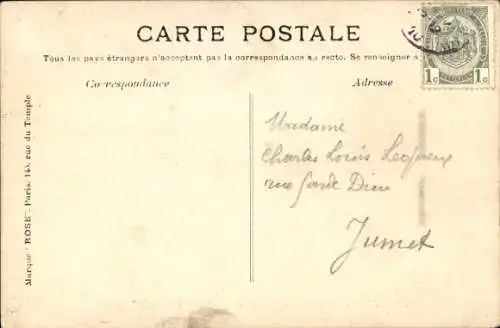 CARTE POSTALE
Tous les pays étrangers n'acceptent pas la correspondance au recto. Se renseigner à
Correspondance
Adresse
1c 1c
Madame
Charles Louis
rue Dieu
Jumet
Marque "ROSE". Paris, 145, rue du Temple